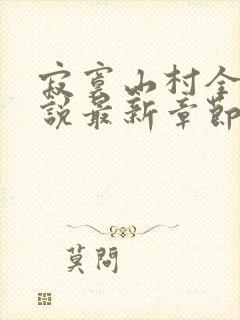 寂寞山村全
說最新章節
莫問